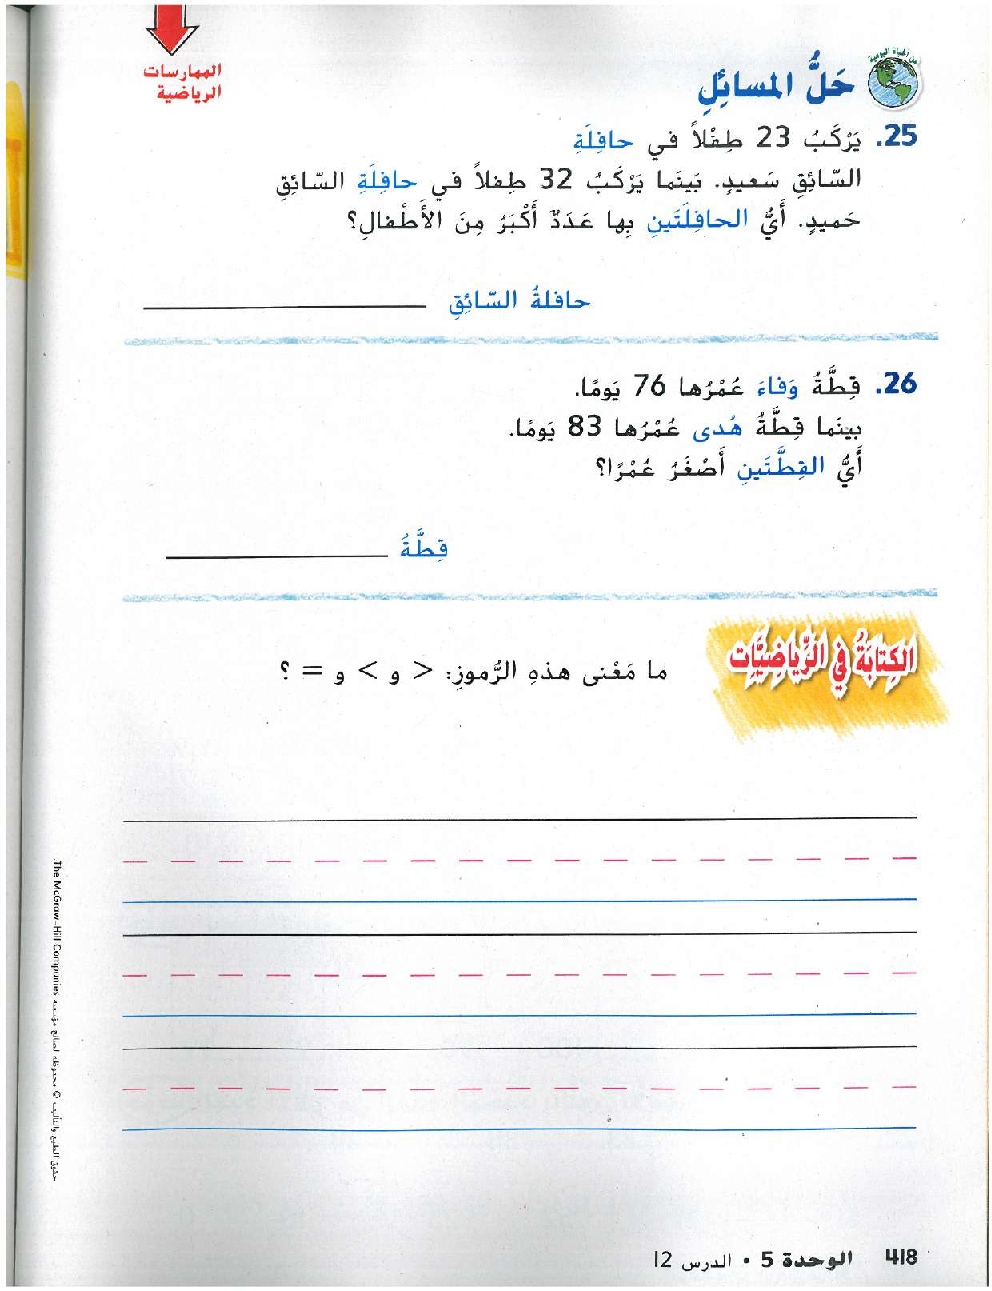 الممارسات
الرياضية
من الحياة اليومية
حَلُّ المسائِلِ
.25 يَرْكَبُ 23 طِفْلاً في حافِلَةِ
السّائِقِ سَعيدٍ. بَينَما يَرْكَبُ 32 طِفلاً في حافِلَةِ السّائِقِ
حَميدٍ. أَيُّ الحافِلَتَينِ بِها عَدَدٌ أَكْبَرُ مِنَ الأَطْفالِ؟
حافلةُ السّائِقِ
.26 قِطَّةُ وَفاءَ عُمْرُها 76 يَومًا.
بينَما قِطَّةُ هُدى عُمْرُها 83 يَومًا.
أَيُّ القِطَّتَينِ أَصْغَرُ عُمْرًا؟
قِطَّةُ
الكِتابَةُ في الرِّياضِيّات
ما مَعْنى هذهِ الرُّموزِ: < و > و = ؟
حقوق الطبع والتأليف © محفوظة لصالح مؤسسة The McGraw-Hill Companies
418 الوحدة 5 • الدرس 12